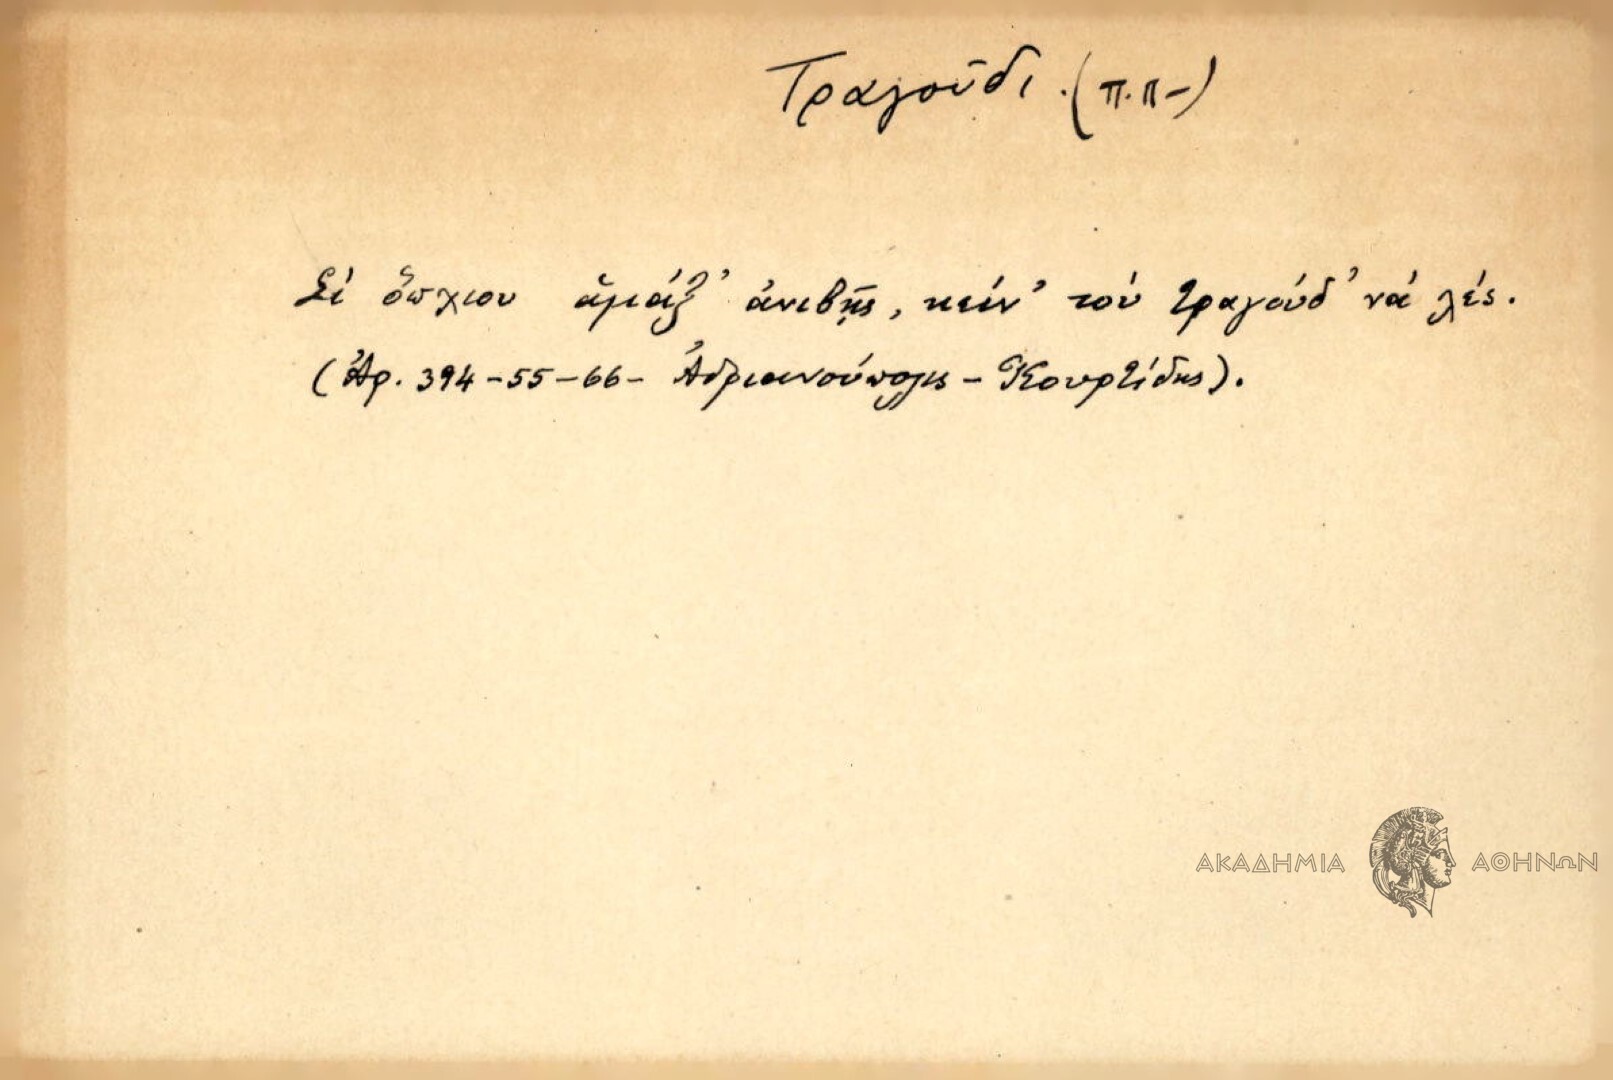 Τραγοῦδι. (π.π-)
Σὶ ὅπχιου ἁμάξ' ἀνιβῇς, κεῖν' τοὺ τραγούδ' νὰ λές.
(Ἀρ. 394-55-66- Ἀδριανούπολις - Κουρτίδης).
ΑΚΑΔΗΜΙΑ ΑΘΗΝΩΝ